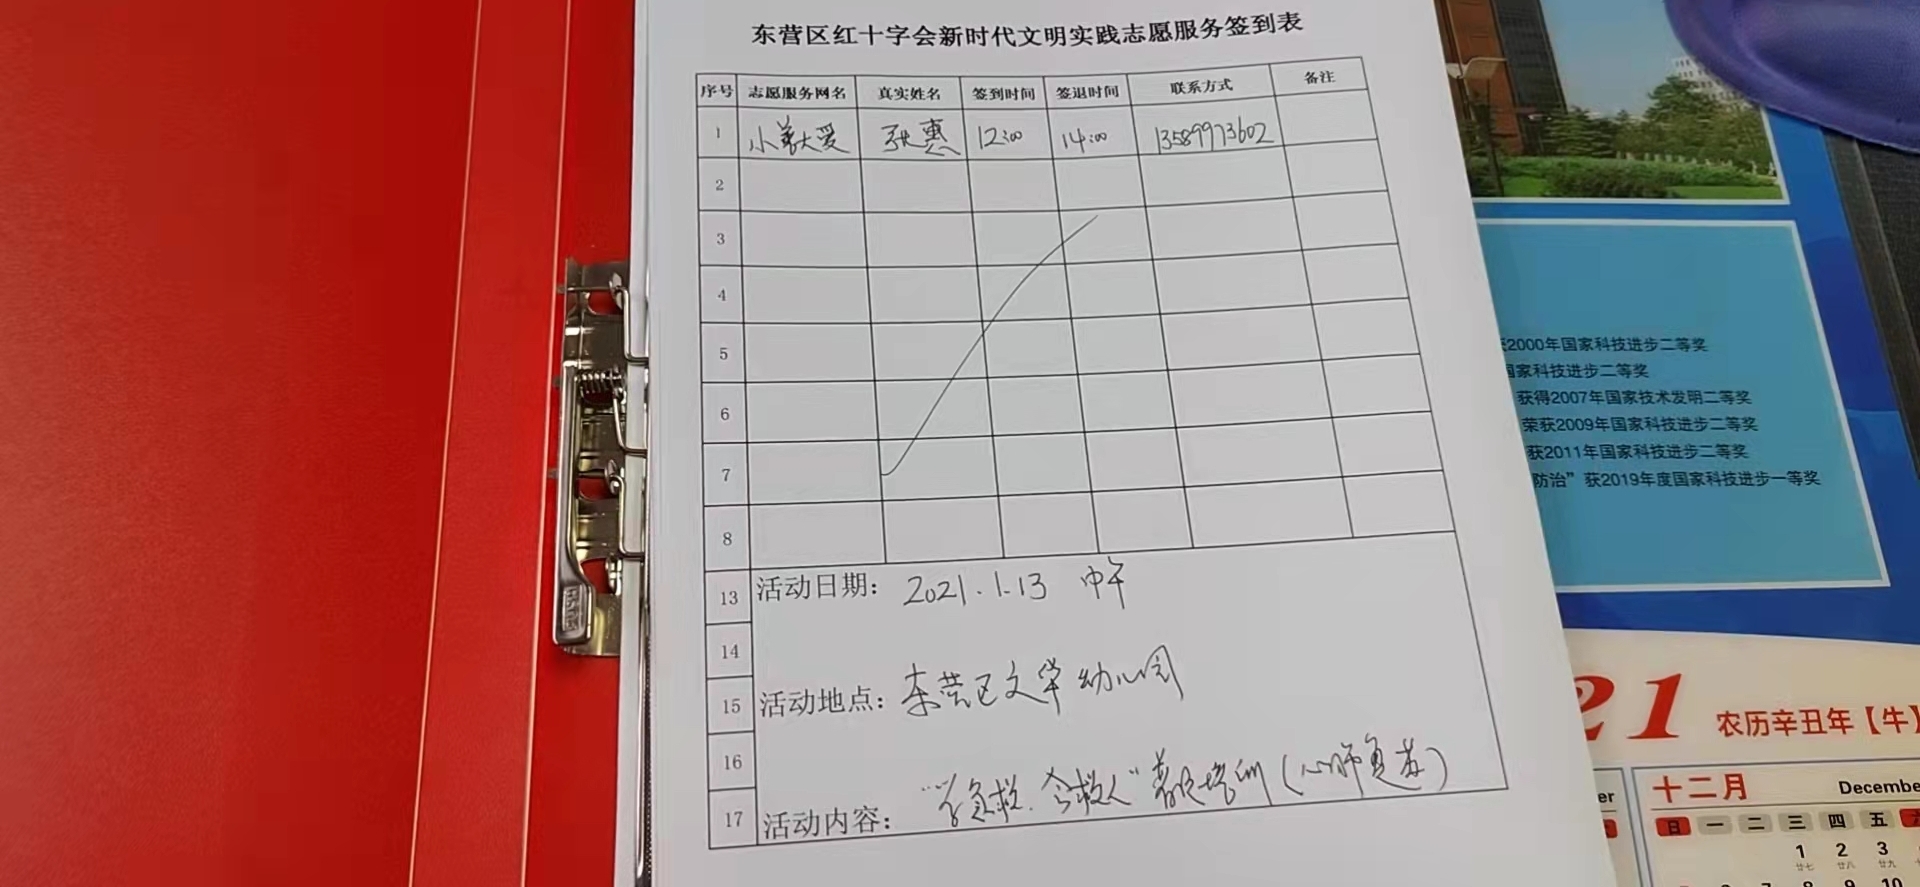 东营区红十字会新时代文明实践志愿服务签到表
序号 志愿服务网名 真实姓名 签到时间 签退时间 联系方式 备注
1 小美大爱 张惠 12:00 14:00 13589973602
2
3
4
5
6
7
8
13 活动日期: 2021.1.13 中午
14
15 活动地点: 东营区文华幼儿园
16
17 活动内容: “学急救.会救人” 普及培训(心肺复苏)
2000年国家科技进步二等奖
国家科技进步二等奖
获得2007年国家技术发明二等奖
荣获2009年国家科技进步二等奖
获2011年国家科技进步二等奖
防治”获2019年度国家科技进步一等奖
21 农历辛丑年【牛】
十二月 Decembe
er
日 一 二 三 四 五 六
1 2 3
廿七 廿八 廿九
7 8 9 10